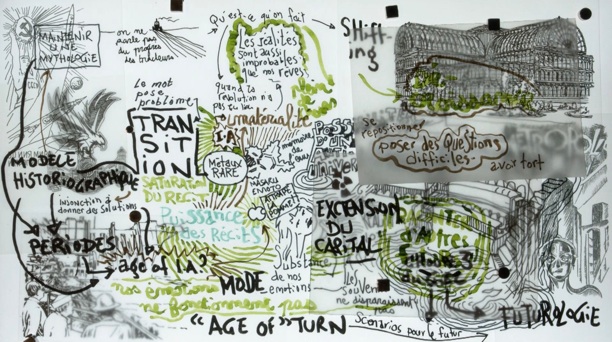 MAINTENIR
UNE
MYTHOLOGIE
on ne
parle pas
du
des
Qu'est-ce qu'on fait
Les réalités
sont aussi
improbables
que nos rêves
quand la
résolution n'y
SHIFT-
ING
Le mot
pose
problème
TRAN-
SIT-
ION
immaterialité
I.A.
Métaux
RARE
mémoire
de
MASARU
EMOTO
SATURATION
DU RECIT
Puissance
des Récits
MODELE
HISTORIOGRAPHIQUE
injonction à
donner des solutions
PERIODES
age of I.A?
MODE
Substance
de nos
emotions
nos émotions
ne fonctionnent pas
"AGE OF" TURN
Scenarios pour le futur
EXTENSION
DU
CAPITAL
d'Autres
Les
ne disparaissent
pas
se
repositionner
poser des Questions
difficiles-
avoir tort
FUTUROLOGIE